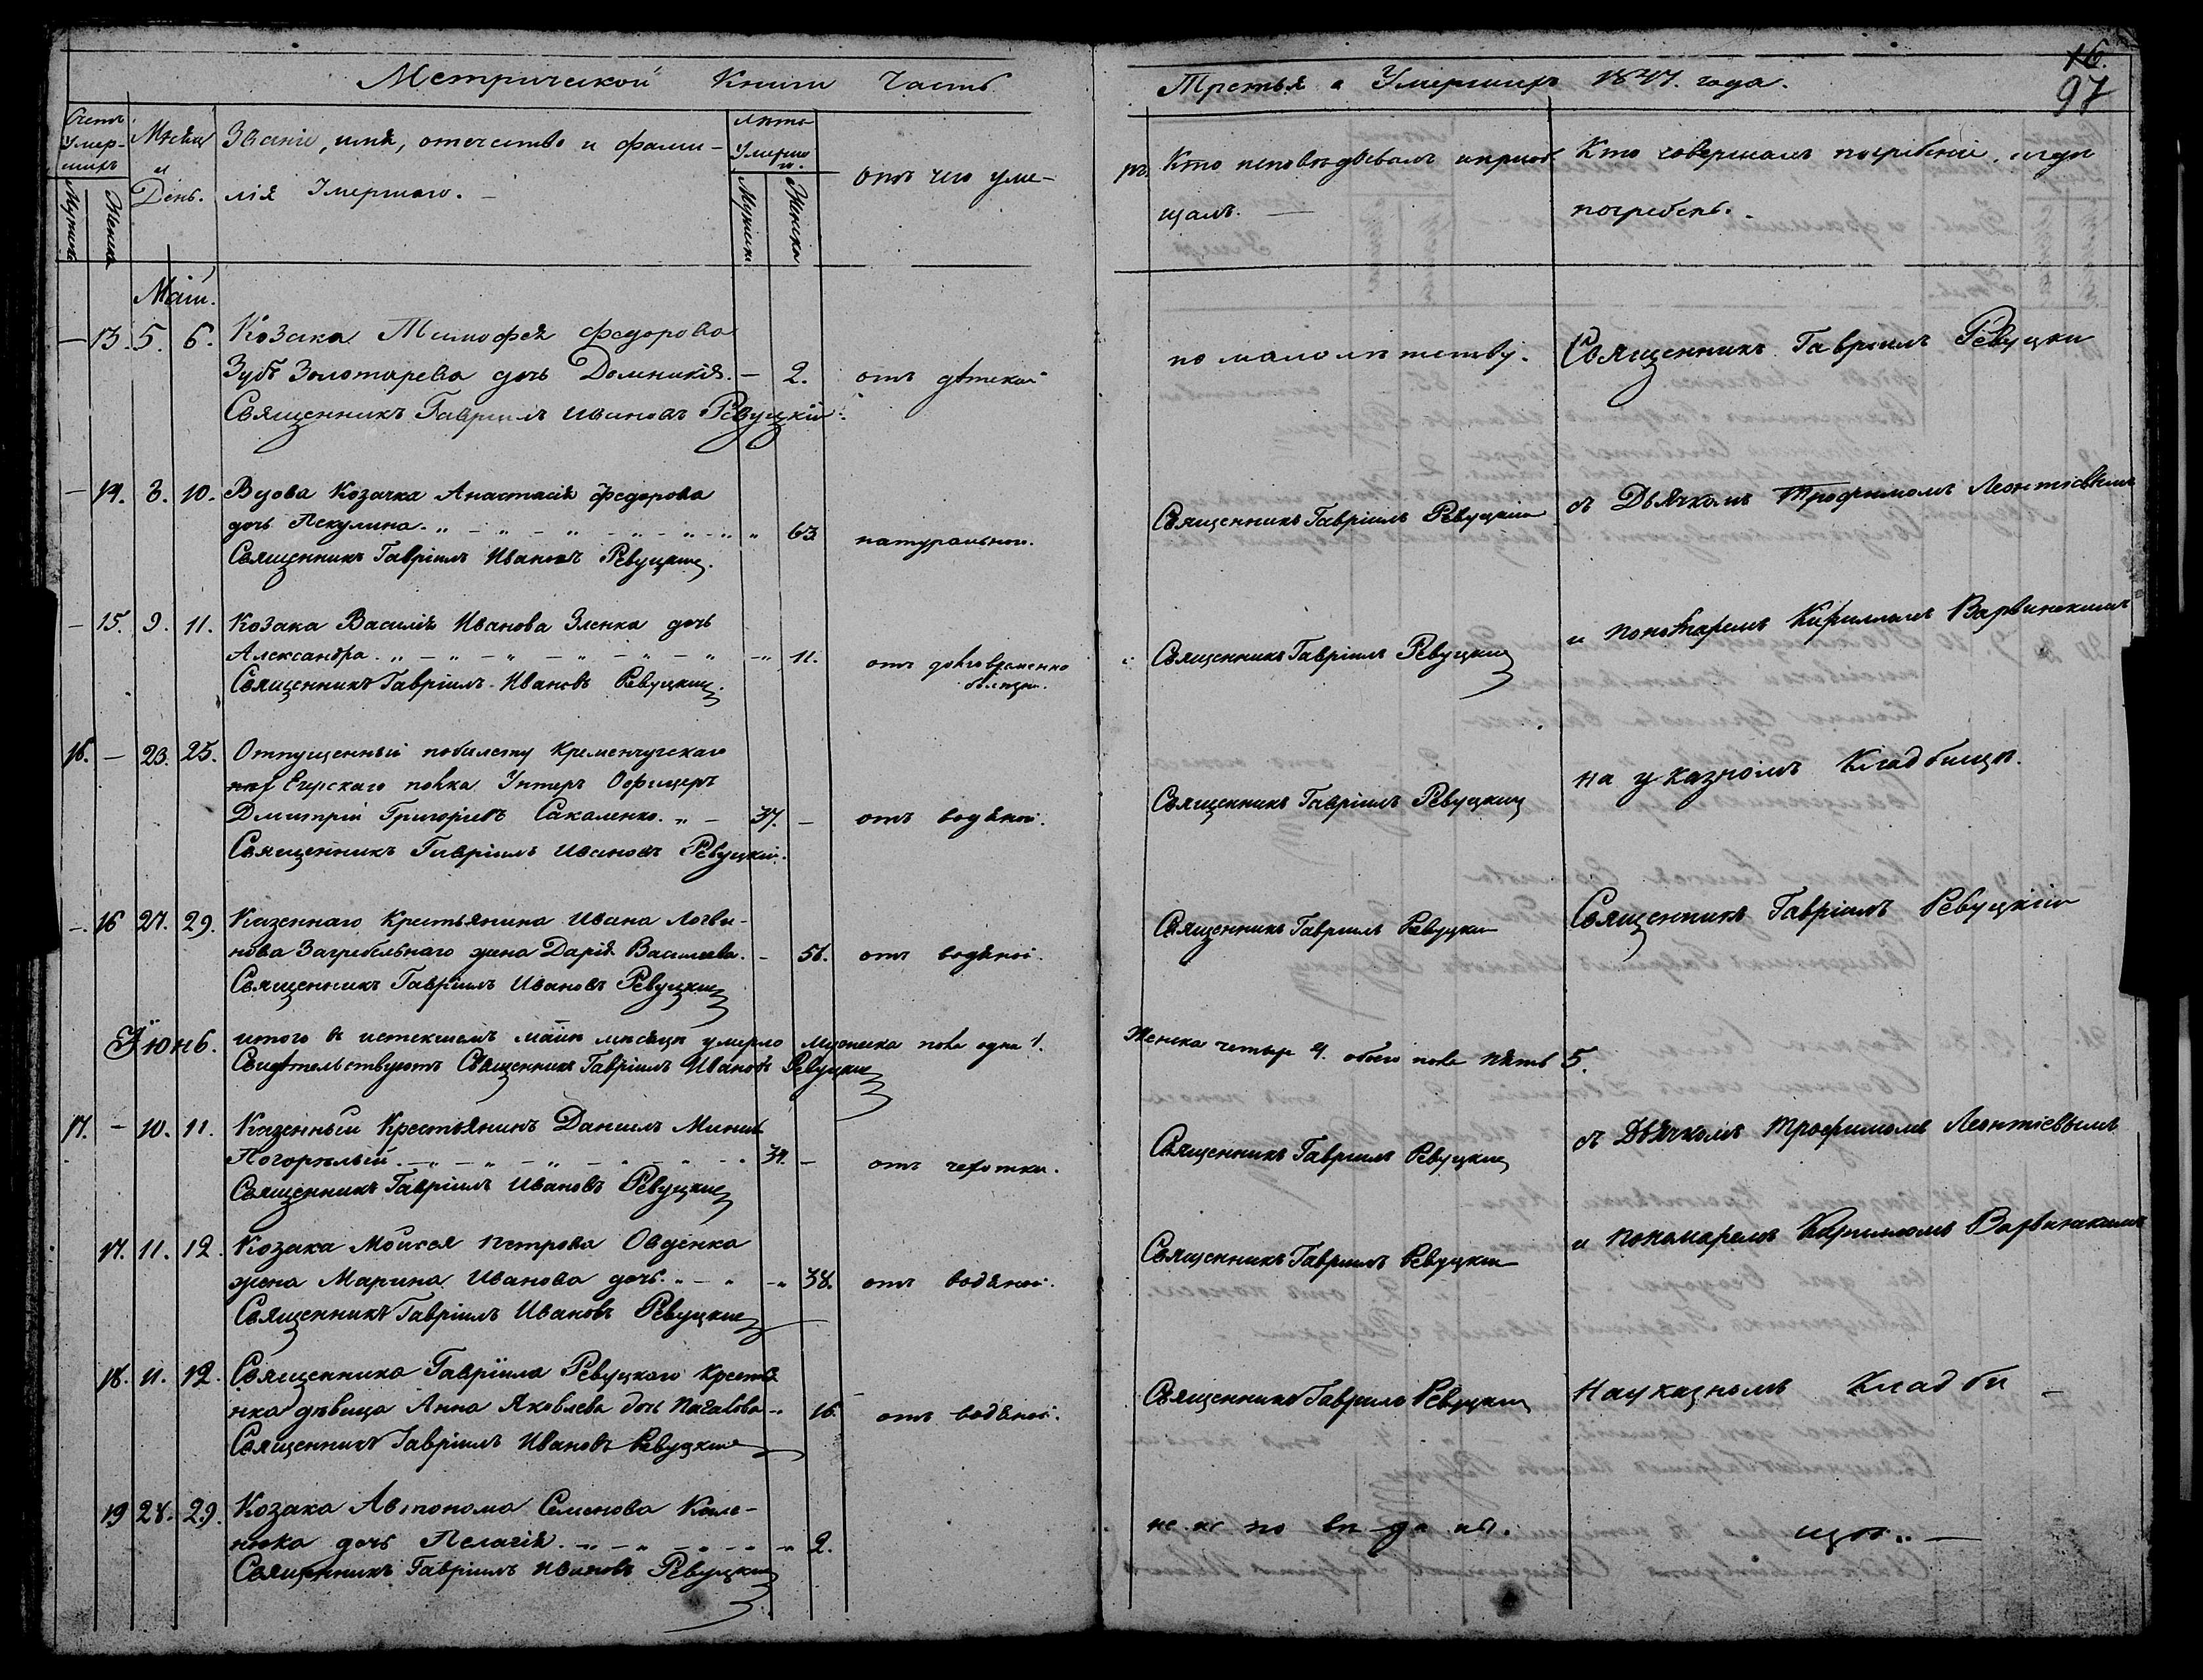 Метрической Книги Часть
Третья о Умершихъ 1847. года.
16.
97
Счетъ Умершихъ
Мужеска
Женска
Мѣсяцъ и День.
Званіе, имя, отечество и фами-
лія Умершаго. —
Лѣта Умершаго.
Мужеска
Женска
отъ чего уме-
ръ.
Кто исповѣдывалъ и приоб-
щалъ. —
Кто совершалъ погребеніе и гдѣ
погребенъ.
Маій.
— 13. 5. 6. Козака Тимофея Федорова
Зубъ Золотарева дочь Домникія. — 2. отъ дѣтской
Священникъ Гавріилъ Ивановъ Ревуцкій.
по малолѣтству.
Священникъ Гавріилъ Ревуцкій
— 14. 8. 10. Вдова Козачка Анастасія Федорова
дочь Пекулина. 63 натуральной.
Священникъ Гавріилъ Ивановъ Ревуцкій.
Священникъ Гавріилъ Ревуцкій
съ Дьячкомъ Трофимомъ Леонтіевымъ
— 15. 9. 11. Козака Василія Иванова Зленка дочь
Александра. 11. отъ долговременно
болѣзни.
Священникъ Гавріилъ Ивановъ Ревуцкій.
Священникъ Гавріилъ Ревуцкій
и пономаремъ Кириломъ Варвинскимъ
16. — 23. 25. Отпущенный по билету Кременчугскаго
Егерскаго полка Унтеръ Офицеръ
Дмитрій Григоріевъ Сакаленко. 37. — отъ водяной.
Священникъ Гавріилъ Ивановъ Ревуцкій.
Священникъ Гавріилъ Ревуцкій
на указномъ Кладбищѣ.
— 16 27. 29. Казеннаго Крестьянина Ивана Логви-
нова Загребельнаго жена Дарія Василева. — 56. отъ водяной.
Священникъ Гавріилъ Ивановъ Ревуцкій
Священникъ Гавріилъ Ревуцкій
Священникъ Гавріилъ Ревуцкій
Іюнь. итого въ истекшемъ маіи мѣсяцѣ умерло мужеска пола одна 1.
Женска четыре 4. обоего пола пять 5.
Свидѣтельствуютъ Священникъ Гавріилъ Ивановъ Ревуцкій
17. — 10. 11. Казенный Крестьянинъ Даніилъ Мининъ
Погорѣлый. 34. — отъ чехотки.
Священникъ Гавріилъ Ивановъ Ревуцкій
Священникъ Гавріилъ Ревуцкій
съ Дьячкомъ Трофимомъ Леонтіевымъ
17. 11. 12. Козака Моисея Петрова Овденка
жена Марина Иванова дочь. 38. отъ водяной.
Священникъ Гавріилъ Ивановъ Ревуцкій
Священникъ Гавріилъ Ревуцкій
и Пономаремъ Кириломъ Варвинскимъ
18. 11. 12. Священника Гавріила Ревуцкаго крестья-
нка дѣвица Анна Яковлева дочь 16. отъ водяной.
Священникъ Гавріилъ Ивановъ Ревуцкій
Священникъ Гавріилъ Ревуцкій
На указномъ Кладби —
19 28. 29. Козака Автонома Семенова Кале-
нюка дочь Пелагія. 2.
Священникъ Гавріилъ Ивановъ Ревуцкій
щѣ. —